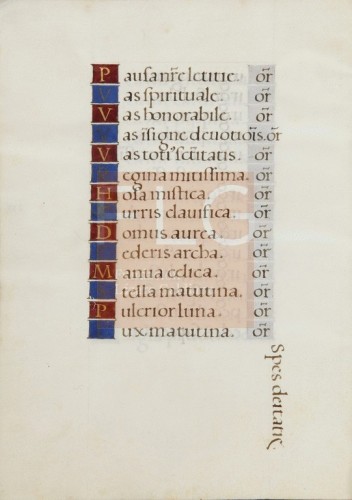 Pausa nr̄e letitie. or̄
Vas spirituale. or̄
Vas honorabile. or̄
Vas īsigne deuotiōis. or̄
Vas toti' sc̄titatis. or̄
egina mitissima. or̄
Hosa mistica. or̄
urris dauifica. or̄
Domus aurea. or̄
ederis archa. or̄
Manua celica. or̄
tella matutina. or̄
Pulcrior luna. or̄
ux matutina. or̄
Spes deitatis